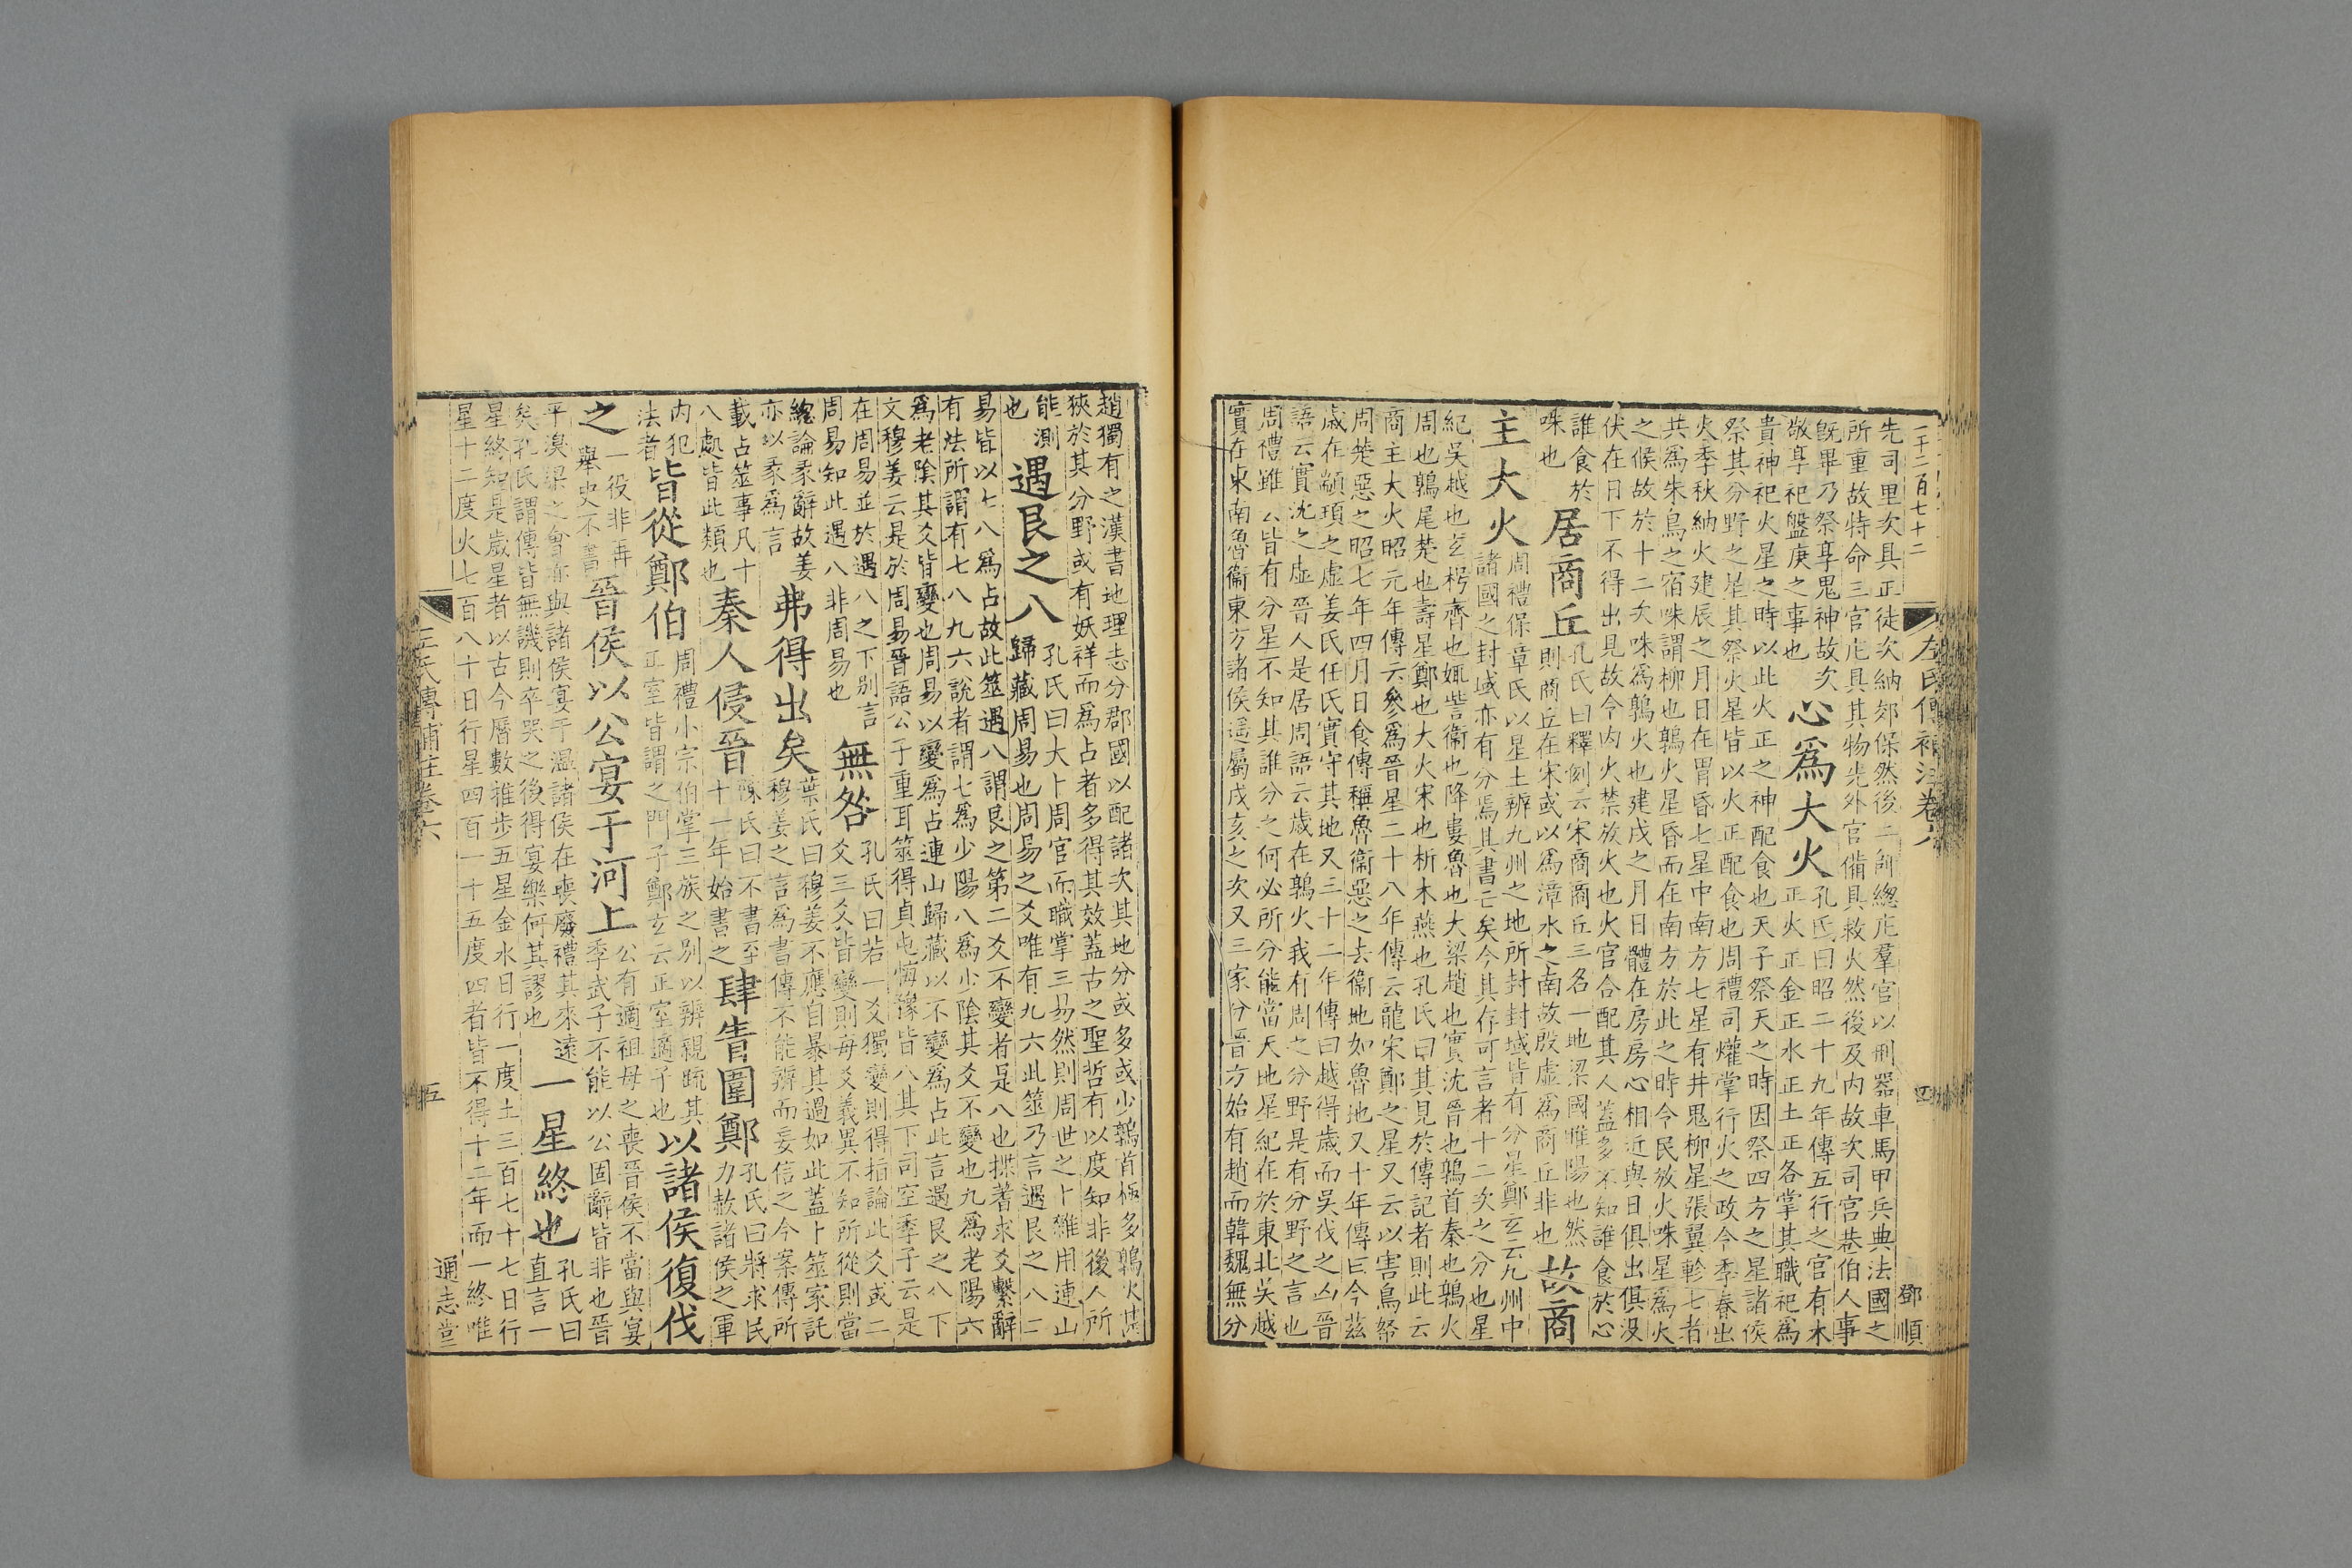 二千二百七十二
左氏傳補注卷六
四
鄧順
先司里次具正徒次納郊保然後二師緫庀羣官以刑器車馬甲兵典法國之
所重故特命三官庀具其物先外官備具救火然後及内故次司宮巷伯人事
旣畢乃祭享鬼神故次
敬享祀盤庚之事也
心爲大火
孔氏曰昭二十九年傳五行之官有木
正火正金正水正土正各掌其職祀爲
貴神祀火星之時以此火正之神配食也天子祭天之時因祭四方之星諸侯
祭其分野之星其祭火星皆以火正配食也周禮司爟掌行火之政令季春出
火季秋納火建辰之月日在胃昏七星中南方七星有井鬼柳星張翼軫七者
共爲朱鳥之宿咮謂柳也鶉火星昏而在南方於此之時令民放火咮星爲火
之候故於十二次咮爲鶉火也建戌之月日體在房房心相近與日俱出俱没
伏在日下不得出見故令内火禁放火也火官合配其人蓋多不知誰食於心
誰食於
咮也
居商丘
孔氏曰釋例云宋商商丘三名一地梁國睢陽也然
則商丘在宋或以爲漳水之南故殷虚爲商丘非也
故商
主大火
周禮保章氏以星土辨九州之地所封封域皆有分星鄭玄云九州中
諸國之封域亦有分焉其書亡矣今其存可言者十二次之分也星
紀吳越也玄枵齊也娵訾衞也降婁魯也大梁趙也實沈晉也鶉首秦也鶉火
周也鶉尾楚也壽星鄭也大火宋也析木燕也孔氏曰其見於傳記者則此云
商主大火昭元年傳云參爲晉星二十八年傳云龍宋鄭之星又云以害鳥帑
周楚惡之昭七年四月日食傳稱魯衞惡之去衞地如魯地又十年傳曰今兹
歲在顓頊之虛姜氏任氏實守其地又三十二年傳曰越得歲而吳伐之凶晉
語云實沈之虛晉人是居周語云歲在鶉火我有周之分野是有分野之言也
周禮雖云皆有分星不知其誰分之何必所分能當天地星紀在於東北吳越
實在東南魯衞東方諸侯遥屬戌亥之次又三家分晉方始有趙而韓魏無分
趙獨有之漢書地理志分郡國以配諸次其地分或多或少鶉首極多鶉火甚
狹於其分野或有妖祥而爲占者多得其效蓋古之聖哲有以度知非後人所
能測
也
遇艮之八
孔氏曰大卜周官而職掌三易然則周世之卜雜用連山
歸藏周易也周易之爻唯有九六此筮乃言遇艮之八二
易皆以七八爲占故此筮遇八謂艮之第二爻不變者是八也揲蓍求爻繫辭
有法所謂有七八九六說者謂七爲少陽八爲少陰其爻不變也九爲老陽六
爲老陰其爻皆變也周易以變爲占連山歸藏以不變爲占此言遇艮之八下
文穆姜云是於周易晉語公子重耳筮得貞屯悔豫皆八其下司空季子云是
在周易並於遇八之下別言
周易知此遇八非周易也
無咎
孔氏曰若一爻獨變則得指論此爻或二
爻三爻皆變則每爻義異不知所從則當
緫論彖辭故姜
亦以彖爲言
弗得出矣
葉氏曰穆姜不應自暴其過如此蓋卜筮家託
穆姜之言爲書傳不能辨而妄信之今案傳所
載占筮事凡十
八處皆此類也
秦人侵晉
陳氏曰不書至
十一年始書之
肆眚圍鄭
孔氏曰將求民
力赦諸侯之軍
内犯
法者
皆從鄭伯
周禮小宗伯掌三族之别以辨親疏其
正室皆謂之門子鄭玄云正室適子也
以諸侯復伐
之
一役非再
舉史不書
晉侯以公宴于河上
公有適祖母之喪晉侯不當與宴
季武子不能以公固辭皆非也晉
平溴梁之會亦與諸侯宴于温諸侯在喪廢禮其來遠
矣孔氏謂傳皆無譏則卒哭之後得宴樂何其謬也
一星終也
孔氏曰
直言一
星終知是歲星者以古今曆數推步五星金水日行一度土三百七十七日行
星十二度火七百八十日行星四百一十五度四者皆不得十二年而一終唯
左氏傳補注卷六
五
通志堂